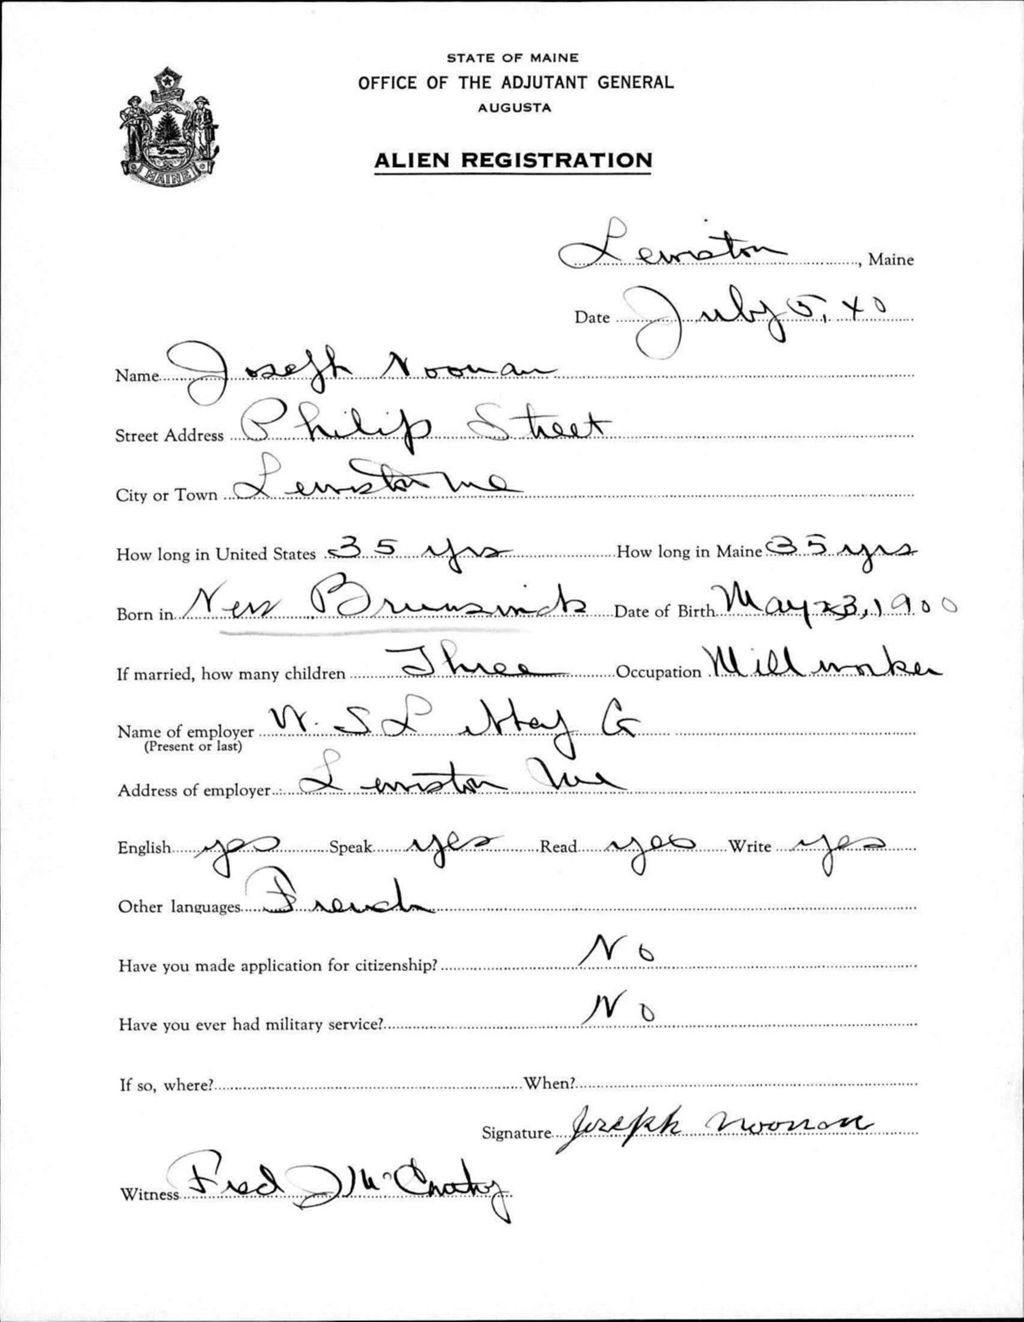 STATE OF MAINE
OFFICE OF THE ADJUTANT GENERAL
AUGUSTA
ALIEN REGISTRATION
MAINE
Lewiston, Maine
Date July 5, 40
Name Joseph Noonan
Street Address Philip Street
City or Town Lewiston Me
How long in United States 35 yrs How long in Maine 35 yrs
Born in New Brunswick Date of Birth May 23, 1900
If married, how many children Three Occupation Mill worker
Name of employer W. S. Libbey Co
(Present or last)
Address of employer Lewiston Me
English yes Speak yes Read yes Write yes
Other languages French
Have you made application for citizenship? No
Have you ever had military service? No
If so, where? When?
Signature Joseph Noonan
Witness Fred J